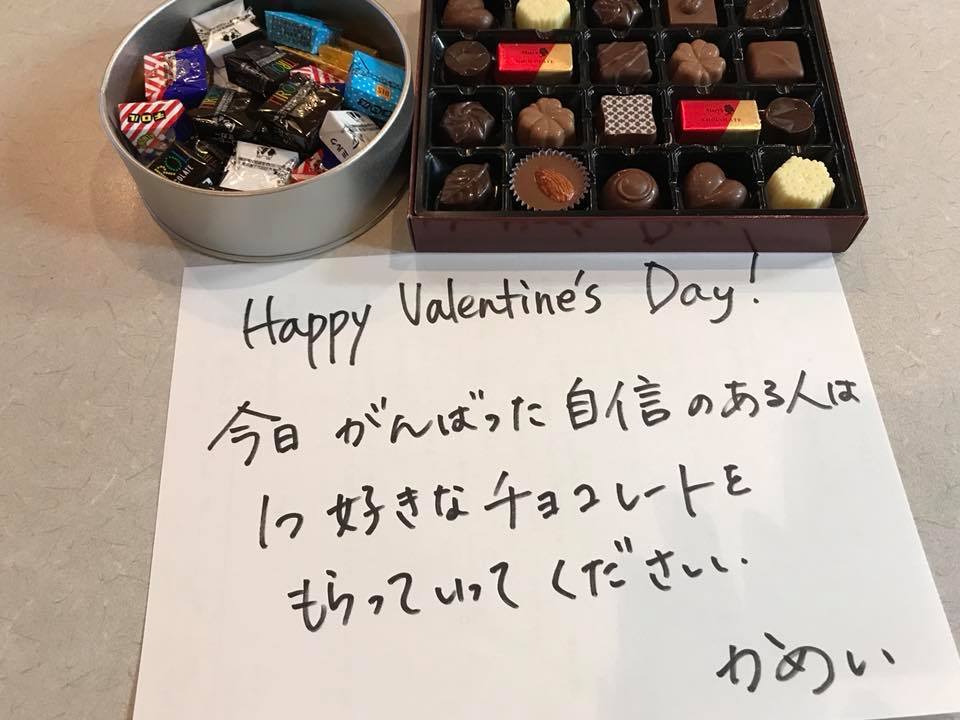 チロル
ミルク
Mary's
CHOCOLATE
Mary's
CHOCOLATE
Happy Valentine's Day!
今日 がんばった 自信のある人は
1つ 好きなチョコレートを
もらっていって ください.
かめい